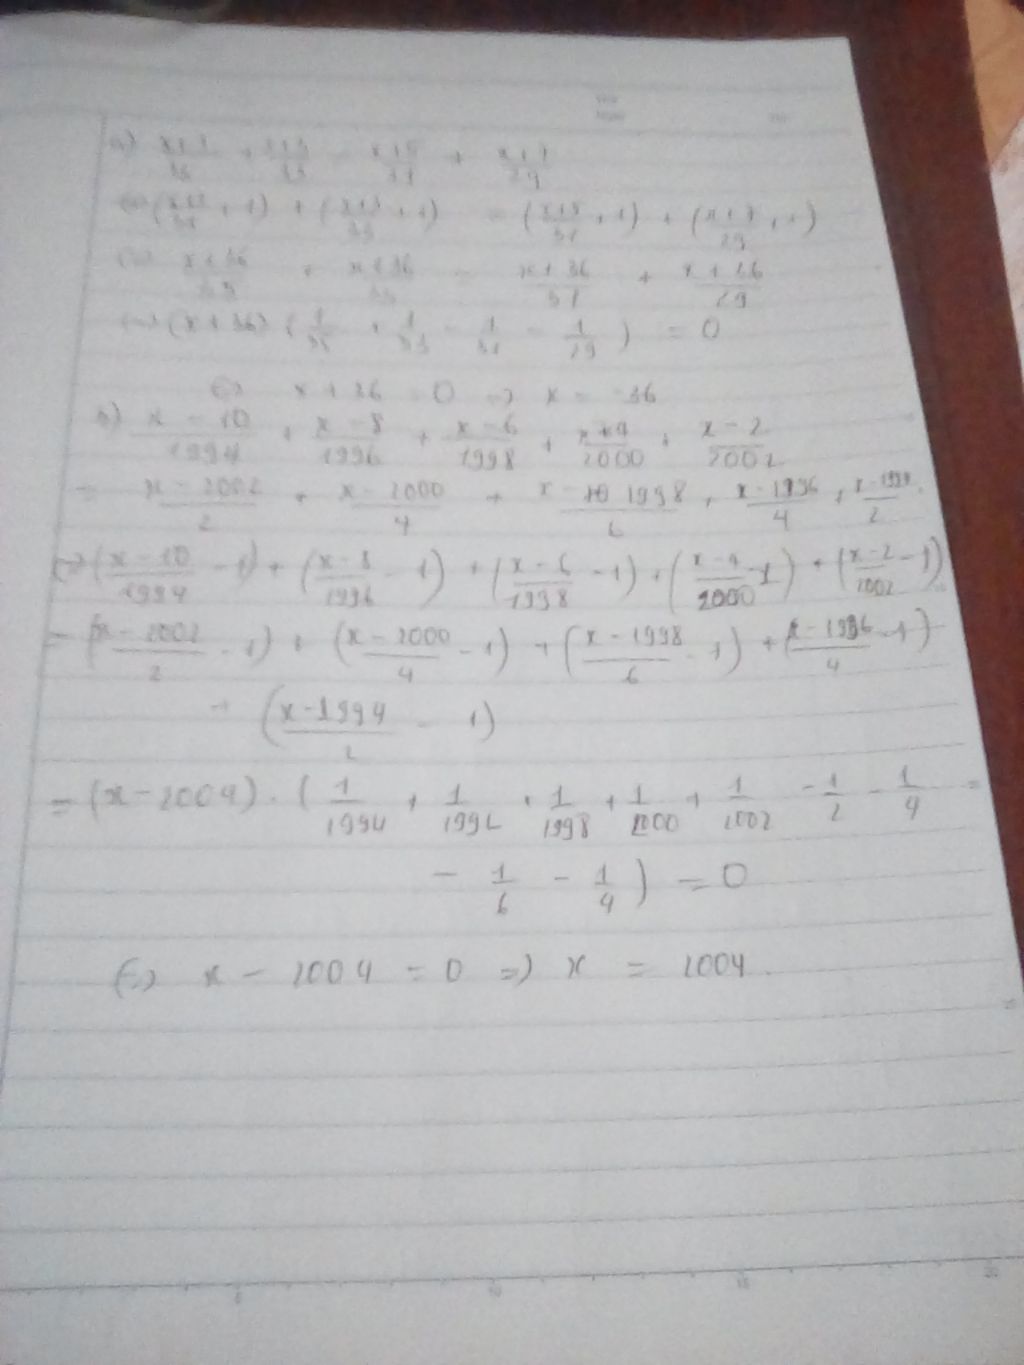 a) x+1/35 + x+3/33 = x+5/31 + x+7/29
<=> (x+1/35 + 1) + (x+3/33 + 1) = (x+5/31 + 1) + (x+7/29 + 1)
<=> x+36/35 + x+36/33 = x+36/31 + x+36/29
<=> (x+36) (1/35 + 1/33 - 1/31 - 1/29) = 0
<=> x + 36 = 0 => x = -36
b) x-10/1994 + x-8/1996 + x-6/1998 + x+4/2000 + x-2/2002
= x-2002/2 + x-2000/4 + x-1998/6 + x-1996/4 +
<=> (x-10/1994 - 1) + (x-8/1996 - 1) + (x-6/1998 - 1) + (x-4/2000 - 1) + (x-2/2002 - 1)
= (x-2002/2 - 1) + (x-2000/4 - 1) + (x-1998/6 - 1) + (x-1996/4 - 1)
+ (x-1994/2 - 1)
= (x-2004) . (1/1994 + 1/1996 + 1/1998 + 1/2000 + 1/2002 - 1/2 - 1/4 =
- 1/6 - 1/4) = 0
<=> x - 2004 = 0 => x = 2004.
5 10 15 20